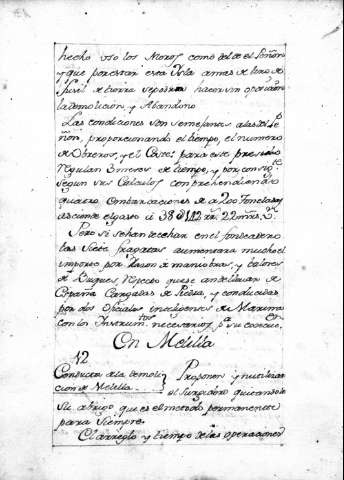 hecho uso los Moros como del de el Peñon
y que por estar esta Isla a mas de tiro de
fusil de tierra se podra hacer sin oposicion
la demolicion, y Abandono
Las condiciones son semejantes a las del Pe
ñon, proporcionando el tiempo, el numero
de Obreros, y el Coste: para este pres
regulan 3 meses de tiempo, y por consig.te
segun sus Calculos comprehendiendo
quatro Embarcaciones de a 200 Toneladas
asciende el gasto à 38 U 112 rr. 22 mrs.
Pero si se han de echar en el fondeadero
las siete fragatas aumentara mucho el
importe por razon de maniobras, y valores
de Buques respecto que se an de llevar de
España Cargadas de Piedra, y conducidas
por dos oficiales inteligentes de Marina
con los Instrum.s necesarios p.a su execuc.on
En Melilla
12
Conducta a la demoli
cion de Melilla.
Proponen inutilizar
el Surgidero quitandole
su abrigo, que es el metodo permanente
para siempre.
El arreglo y tiempo de las operaciones